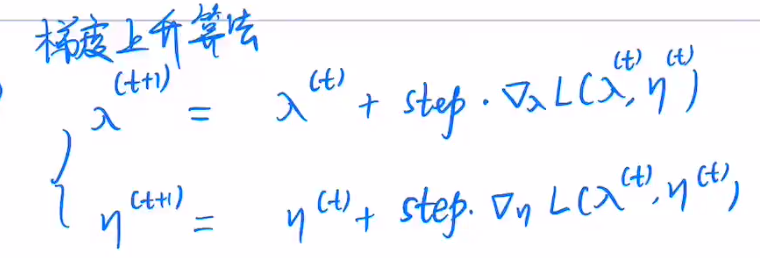 梯度上升算法
λ^(t+1) = λ^(t) + step · ∇_λ L(λ^(t), η^(t))
η^(t+1) = η^(t) + step · ∇_η L(λ^(t), η^(t))